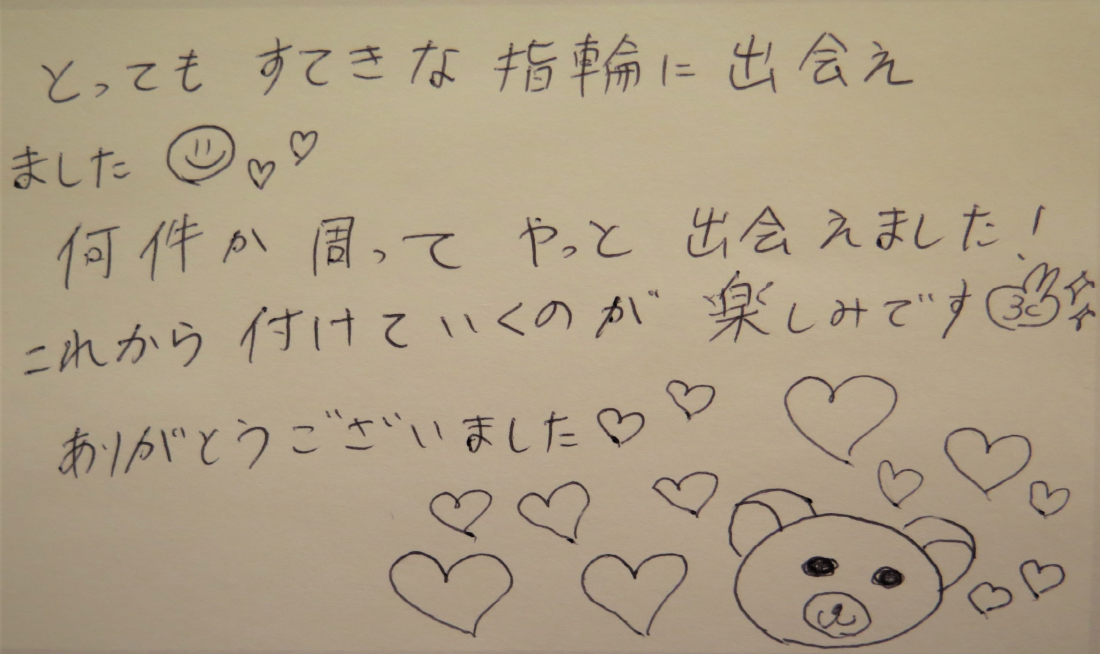 とっても すてきな 指輪に 出会え
ました
何件か 周って やっと 出会えました!
これから 付けていくのが 楽しみです
ありがとうございました